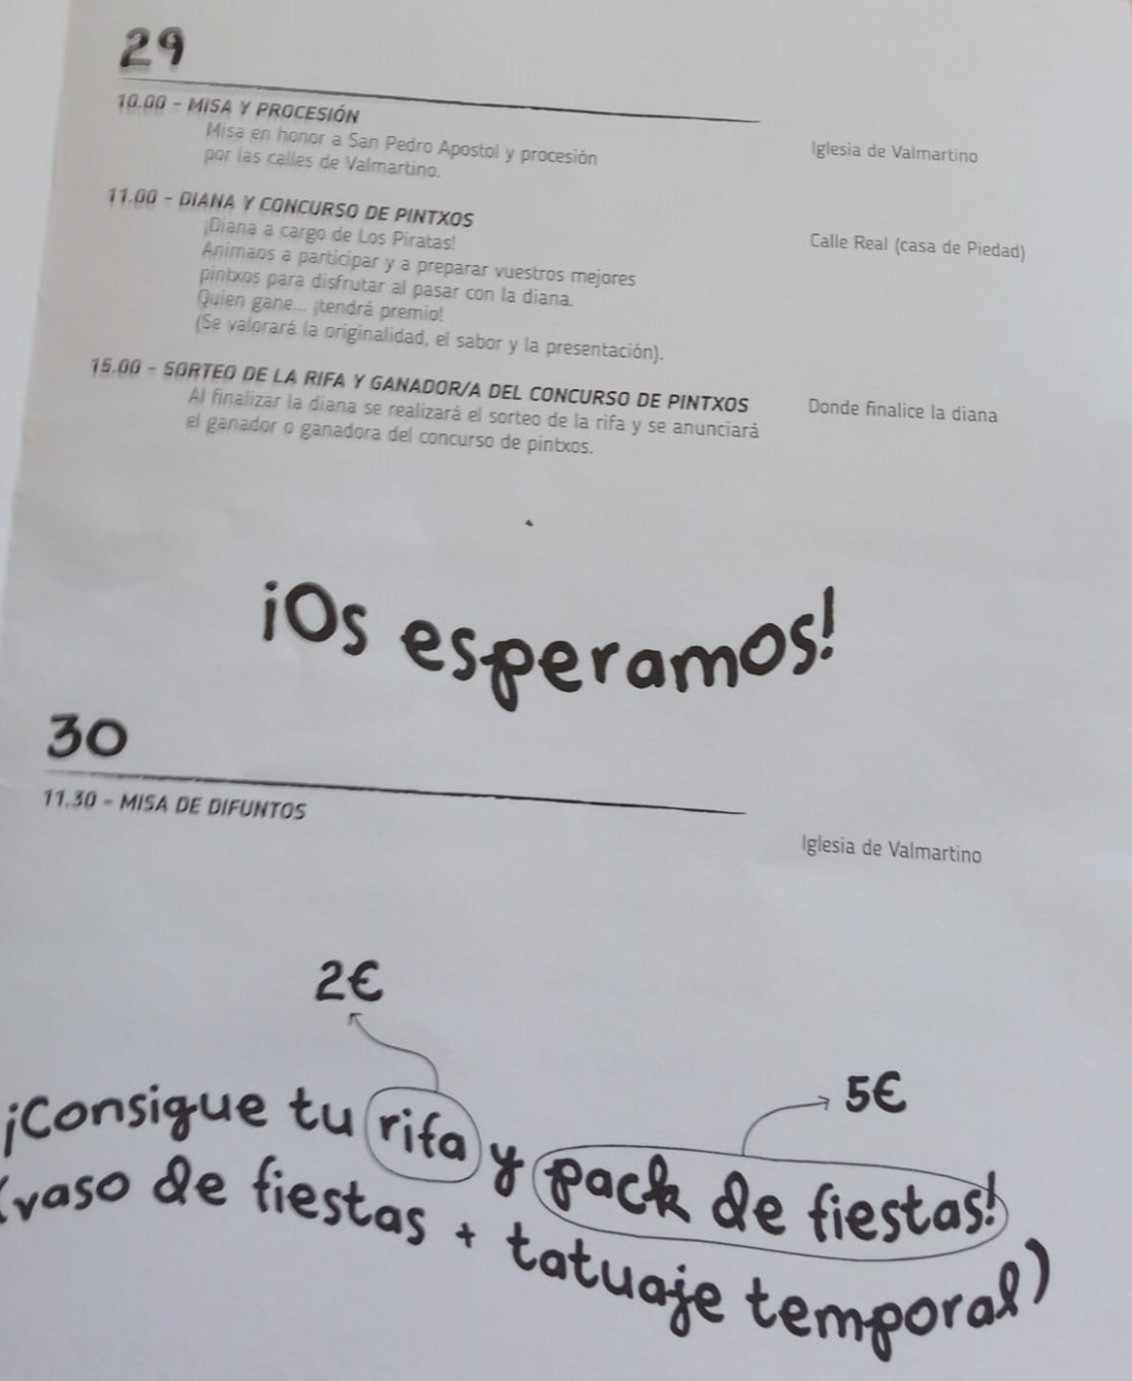 29
10.00 - MISA Y PROCESIÓN
Iglesia de Valmartino
Misa en honor a San Pedro Apostol y procesión
por las calles de Valmartino.
11.00 - DIANA Y CONCURSO DE PINTXOS
Calle Real (casa de Piedad)
¡Diana a cargo de Los Piratas!
Animaos a participar y a preparar vuestros mejores
pintxos para disfrutar al pasar con la diana.
Quien gane... ¡tendrá premio!
(Se valorará la originalidad, el sabor y la presentación).
15.00 - SORTEO DE LA RIFA Y GANADOR/A DEL CONCURSO DE PINTXOS
Donde finalice la diana
Al finalizar la diana se realizará el sorteo de la rifa y se anunciará
el ganador o ganadora del concurso de pintxos.
¡Os esperamos!
30
11.30 - MISA DE DIFUNTOS
Iglesia de Valmartino
2€
5€
¡Consigue tu rifa y pack de fiestas!
(vaso de fiestas + tatuaje temporal)